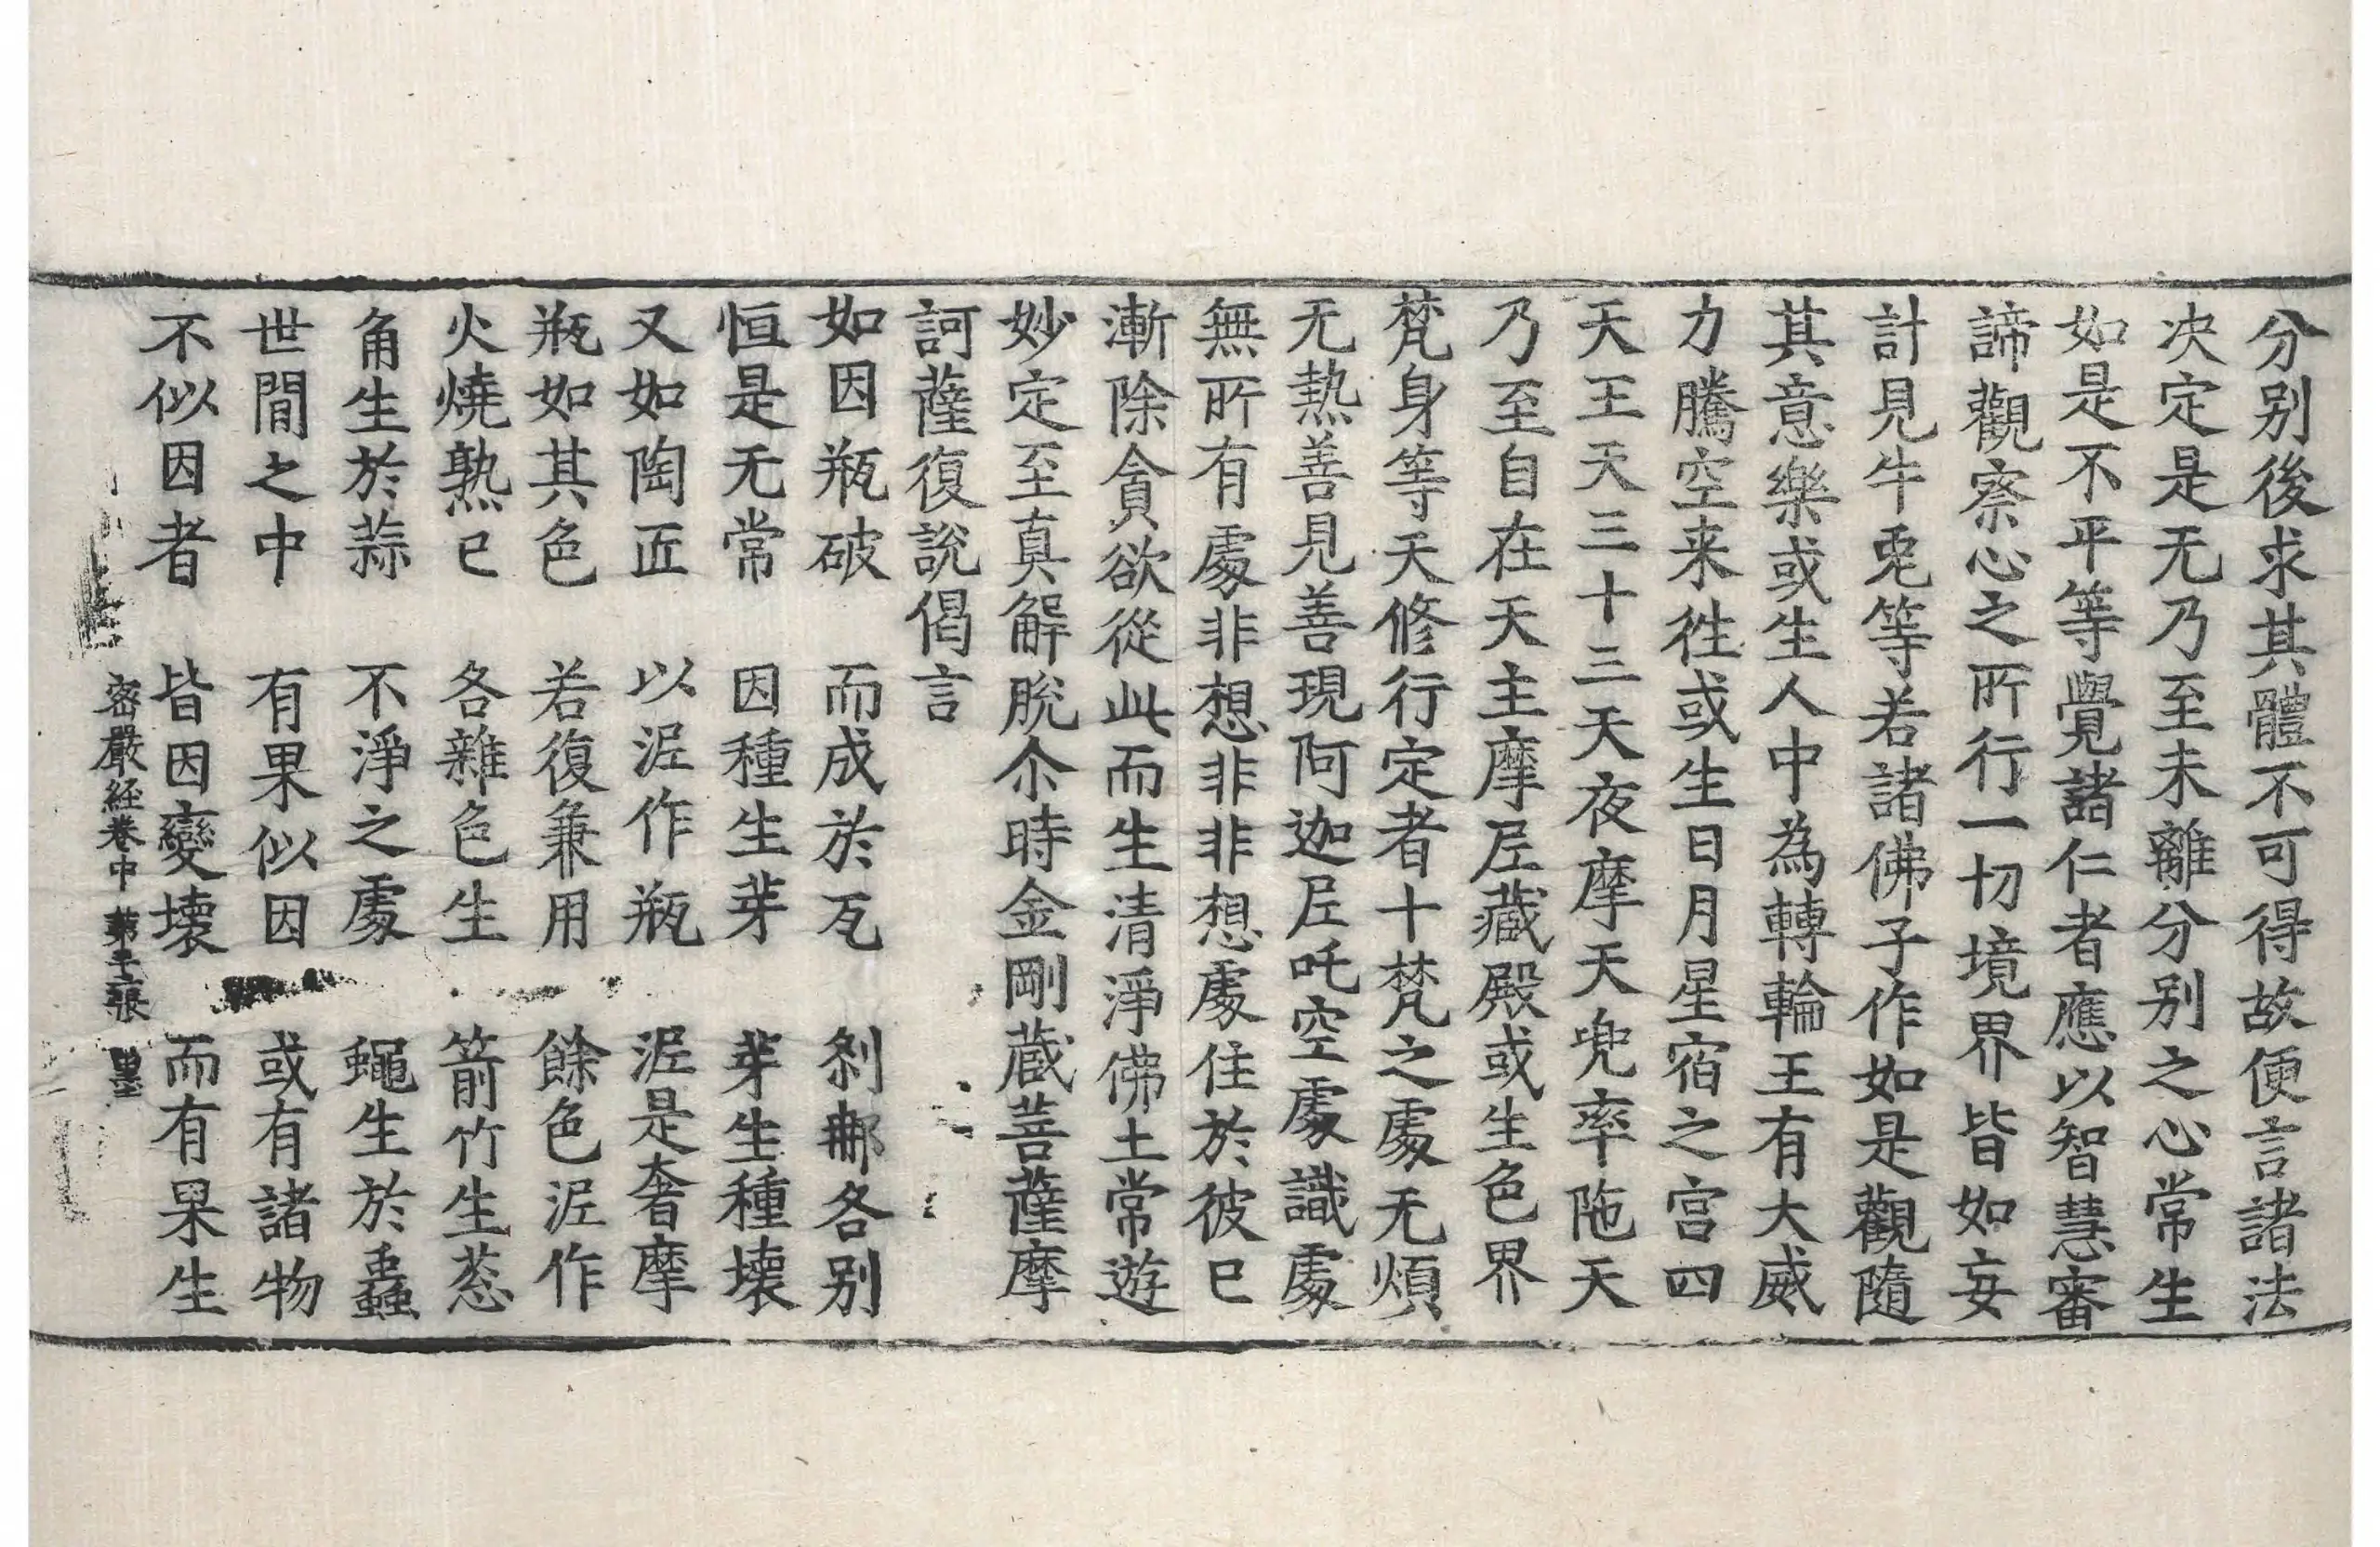 分别後求其體不可得故便言諸法
决定是无乃至未離分别之心常生
如是不平等覺諸仁者應以智慧審
諦觀察心之所行一切境界皆如妄
計見牛兎等若諸佛子作如是觀隨
其意樂或生人中為轉輪王有大威
力騰空来徃或生日月星宿之宫四
天王天三十三天夜摩天兜率陁天
乃至自在天主摩尼藏殿或生色界
梵身等天修行定者十梵之處无煩
无熱善見善現阿迦尼吒空處識處
無所有處非想非非想處住於彼已
漸除貪欲從此而生清淨佛土常遊
妙定至真解脫尒時金剛藏菩薩摩
訶薩復說偈言
如因瓶破　而成於瓦　刹那各别
恒是无常　因種生芽　芽生種壞
又如陶匠　以泥作瓶　泥是奢摩
瓶如其色　若復兼用　餘色泥作
火燒熟已　各雜色生　箭竹生葱
角生於蒜　不淨之處　蠅生於蟲
世間之中　有果似因　或有諸物
不似因者　皆因變壞　而有果生
密嚴经卷中 第十二張 墨